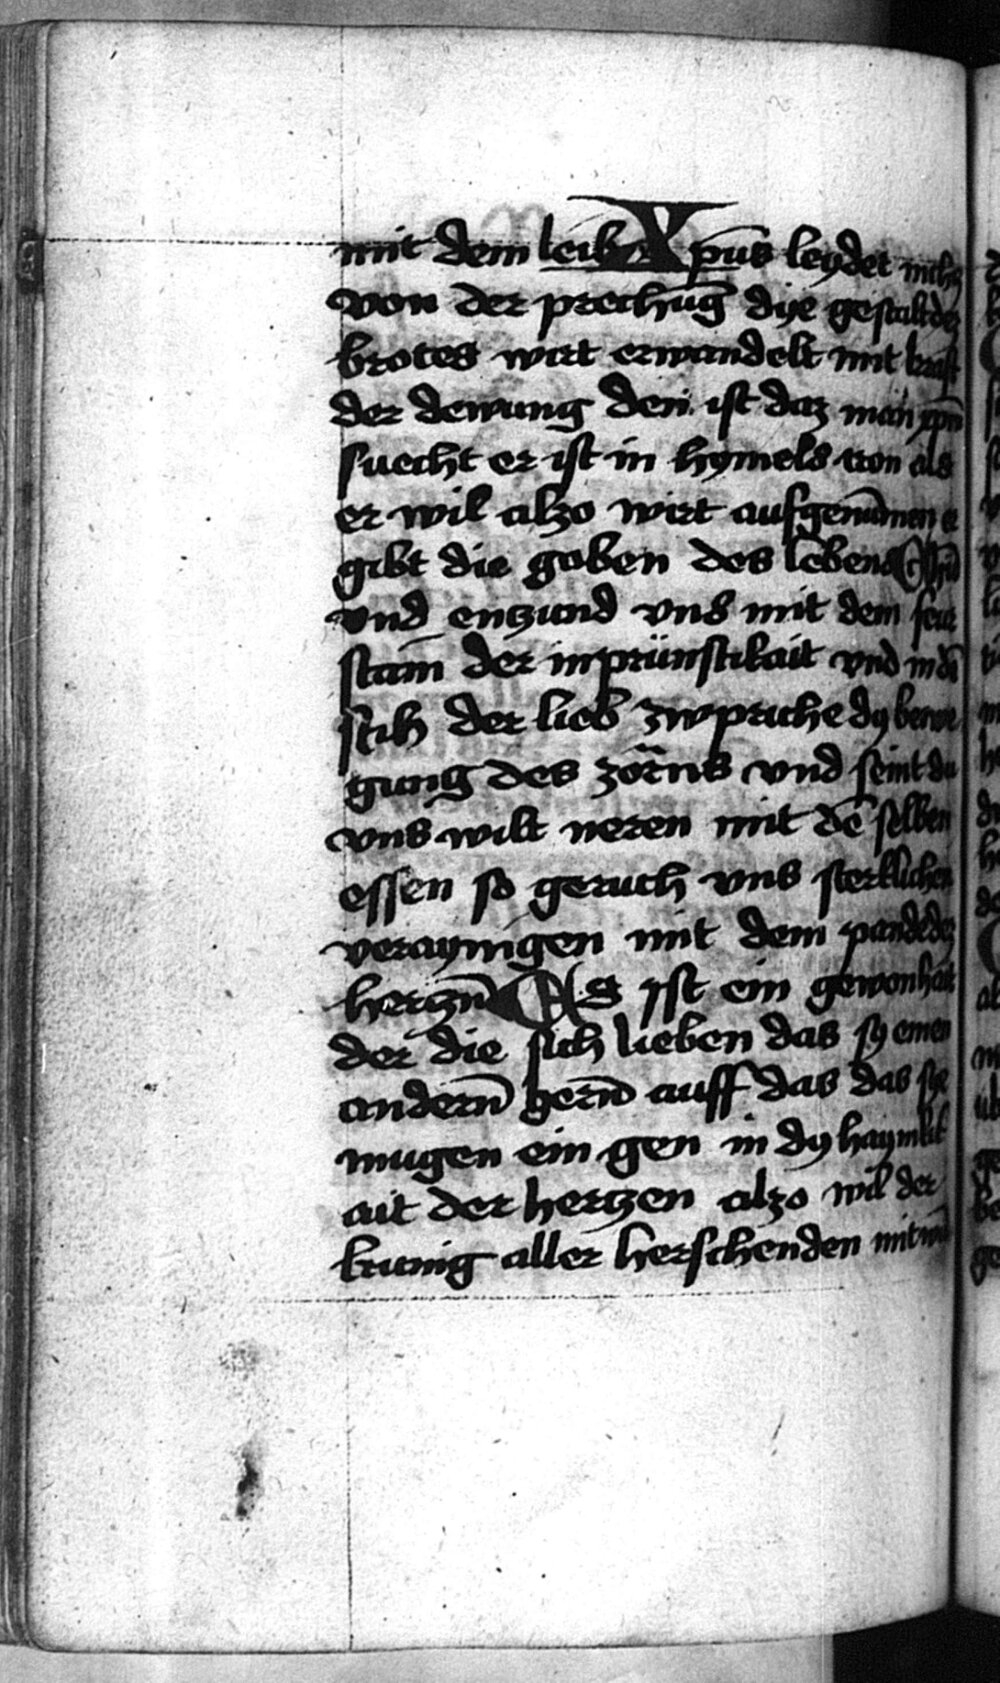 mit dem leib Xp̄us leydet nicht
von der prechūg dye gestalt dez
brotes wirt erwandelt mit kraft
der dewung den ist daz man xpm̄
suecht er ist in hymels tron als
er wil alzo wirt aufgenūmen er
gibt die goben des lebens
vnd enzund vns mit dem feur
stam̄ der inprünstikait vnd in dē
stih der lieb zwpriche dy bewe
gung des zörns vnd seint du
vns wilt neren mit dē selben
essen so geruch vns sterklichen
veraynigen mit dem pande dez
herczn̄ Es yst ein gewonhait
der die sich lieben das sy einen
andern̄ hern̄ auff das das sye
mugen ein gen in dy haymlik
ait der herczen alzo wil der
kunig aller herschenden mit